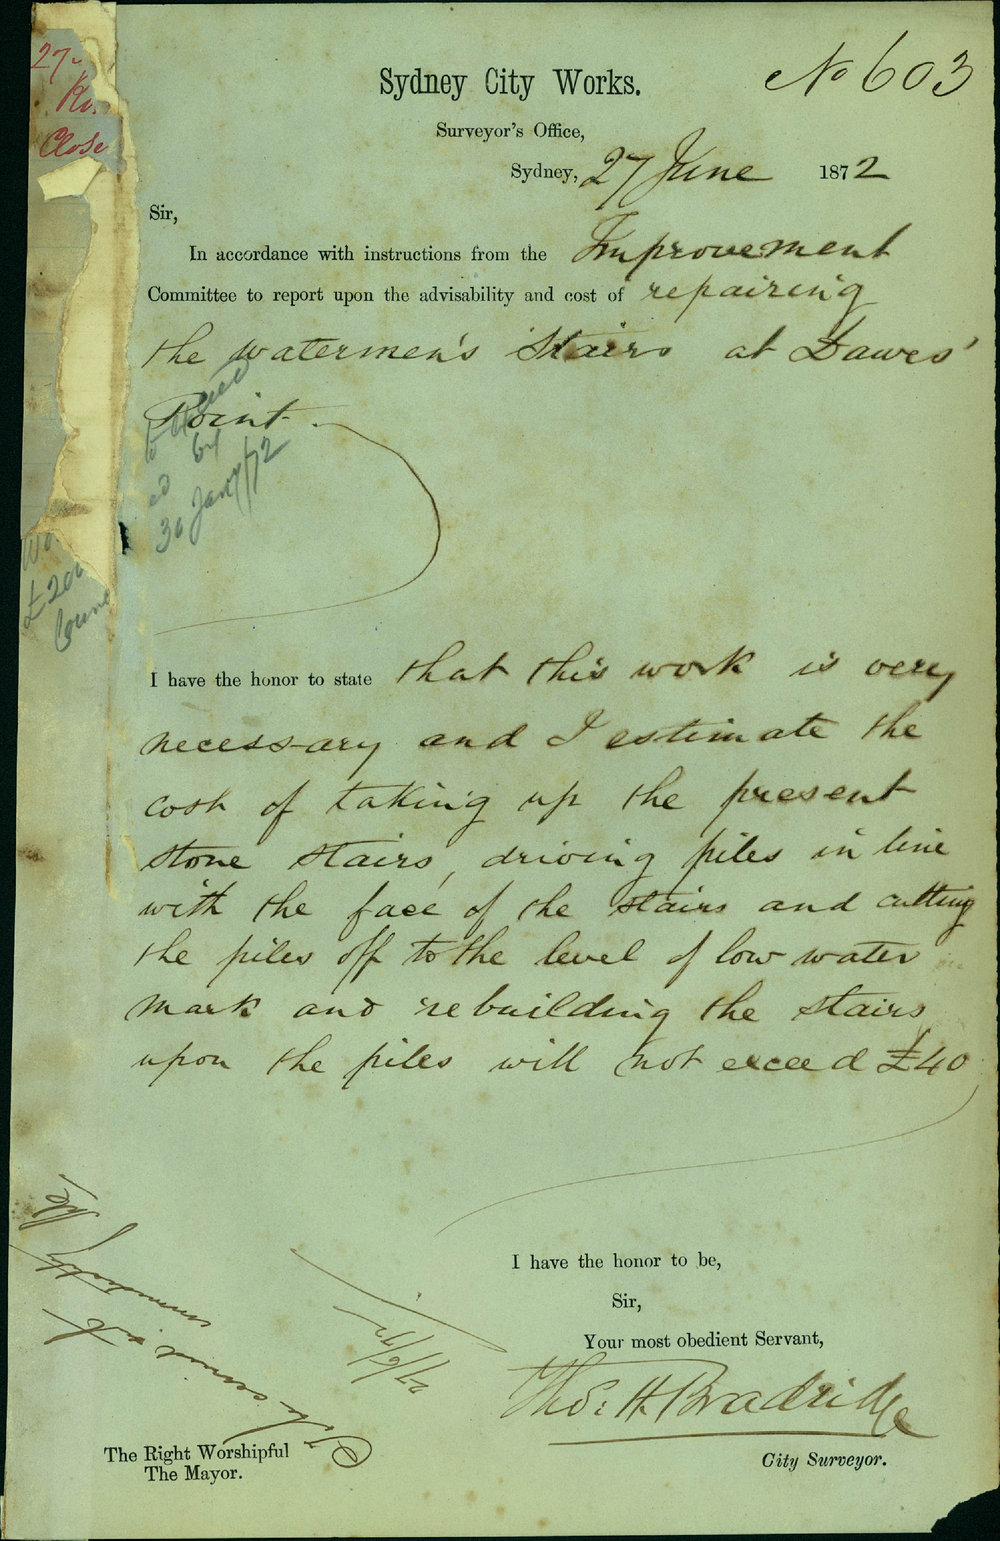 27
Close
No 603
Sydney City Works.
Surveyor's Office,
Sydney, 27 June 1872
Sir,
In accordance with instructions from the Improvement
Committee to report upon the advisability and cost of repairing
the watermen's Stairs at Dawes'
Point
by
30 Jany/72
I have the honor to state that this work is very
necessary and I estimate the
cost of taking up the present
stone stairs, driving piles in line
with the face of the stairs and cutting
the piles off to the level of low water
mark and rebuilding the stairs
upon the piles will not exceed £40
I have the honor to be,
Sir,
Your most obedient Servant,
Thos: H. Bradridge
City Surveyor.
27/6/72
The Right Worshipful
The Mayor.